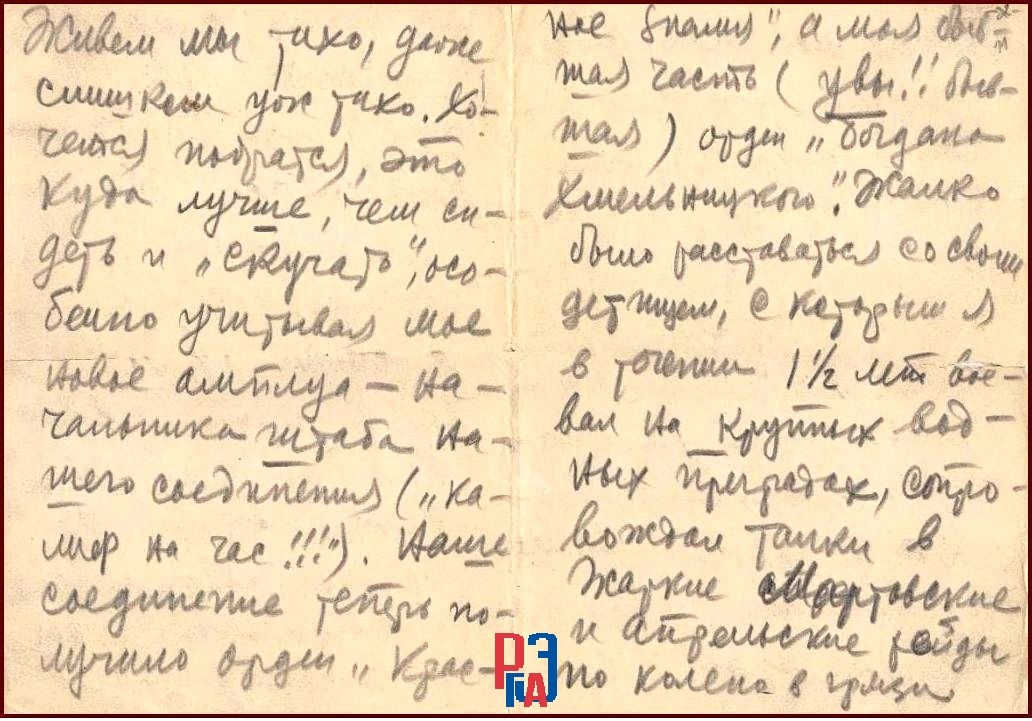 Живем мы тихо, даже
слишком уж тихо. Хо-
чется подраться, это
куда лучше, чем си-
деть и „скучать“, осо-
бенно учитывая мое
новое амплуа — на-
чальника штаба на-
шего соединения („ка-
лиф на час!!!“). Наше
соединение теперь по-
лучило орден „Крас-
ное Знамя“, а моя быв-
шая часть (увы!! быв-
шая) орден „Богдана
Хмельницкого“. Жалко
было расставаться со своим
детищем, с которым я
в течении 1½ лет вое-
вал на крупных вод-
ных преградах, сопро-
вождал танки в
жаркие мартовские
и апрельские рейды
по колено в грязи
РГАЭ